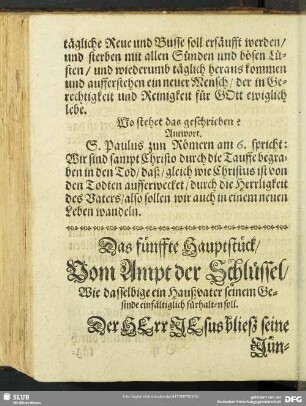 tägliche Reue und Busse soll ersäufft werden/
und sterben mit allen Sünden und bösen Lü-
sten/ und wiederumb täglich heraus kommen
und aufferstehen ein neuer Mensch/ der in Ge-
rechtigkeit und Reinigkeit für GOtt ewiglich
lebe.
Wo stehet das geschrieben?
Antwort.
S. Paulus zun Römern am 6. spricht:
Wir sind sampt Christo durch die Tauffe begra-
ben in den Tod/ daß/ gleich wie Christus ist von
den Todten aufferwecket/ durch die Herrligkeit
des Vaters/ also sollen wir auch in einem neuen
Leben wandeln.
Das fünffte Hauptstück/
Vom Ampt der Schlüssel/
Wie dasselbige ein Haußvater seinem Ge-
sinde einfältiglich fürhalten soll.
Der HErr JEsus bließ seine
Jün-
SLUB
Wir führen Wissen.
gefördert von der
Deutschen Forschungsgemeinschaft
DFG